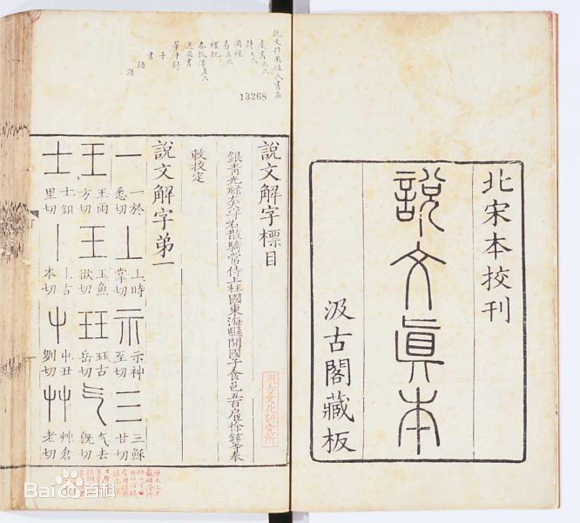 北宋本挍刊
說文眞本
汲古閣藏板
13268
說文解字標目
銀青光祿大夫守右散騎常侍上柱國東海縣開國子食邑五百戶徐鉉等奉
敕挍定
說文解字弟一
一 一於悉切 丄 丄時掌切 示 示神至切 三 三穌甘切
王 王雨方切 王 玉魚欲切 玨 玨古岳切 气 气去旣切
士 士鉏里切 丨 丨古本切 屮 屮丑切 艸 艸倉老切
Bai百科